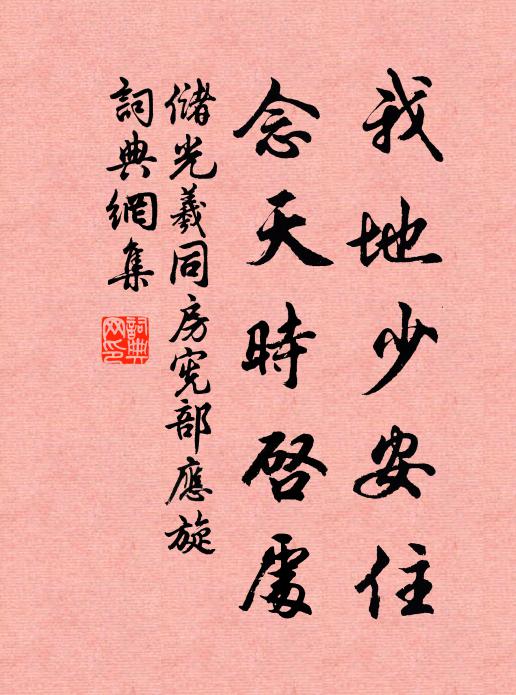 我地少安住
念天時啓處
儲光羲同房憲部應旋
詞典網集
詞典网印